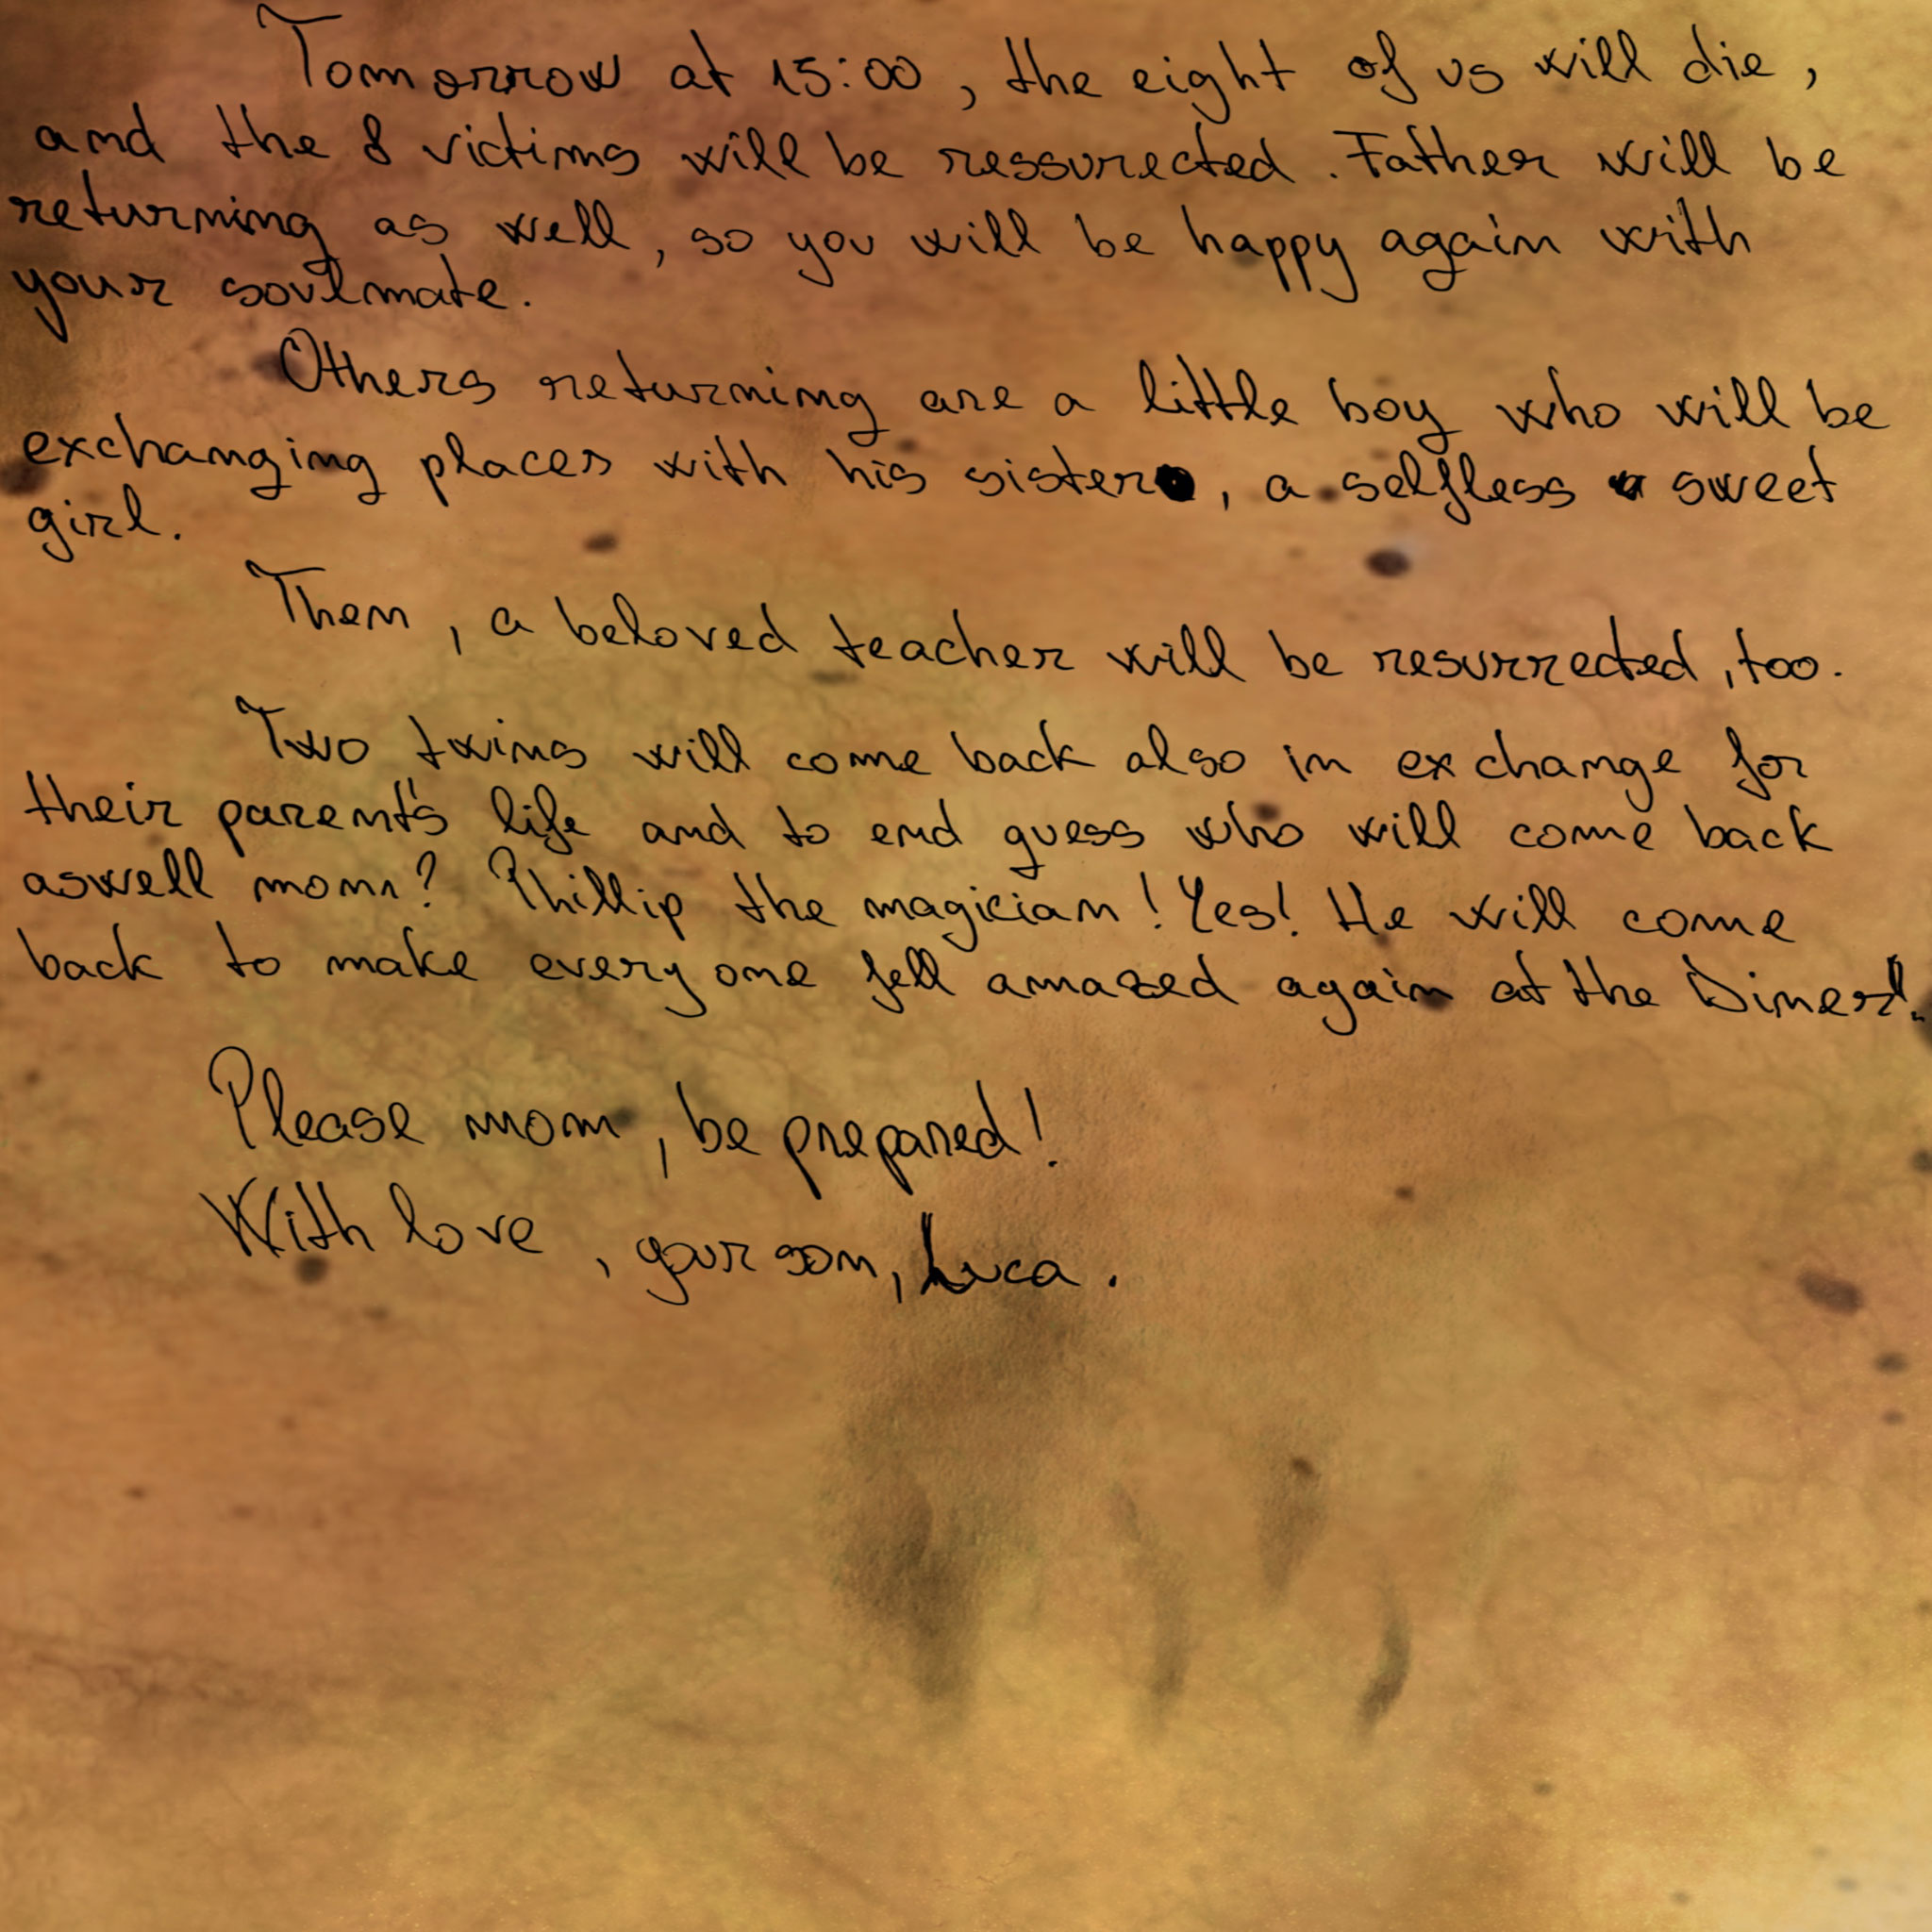 Tomorrow at 15:00, the eight of us will die,
and the 8 victims will be ressurected. Father will be
returning as well, so you will be happy again with
your soulmate.
Others returning are a little boy who will be
exchanging places with his sister, a selfless sweet
girl.
Then, a beloved teacher will be resurrected, too.
Two twins will come back also in exchange for
their parent's life and to end guess who will come back
aswell mom? Phillip the magician! Yes! He will come
back to make everyone fell amazed again at the Diner!
Please mom, be prepared!
With love, your son, Luca.